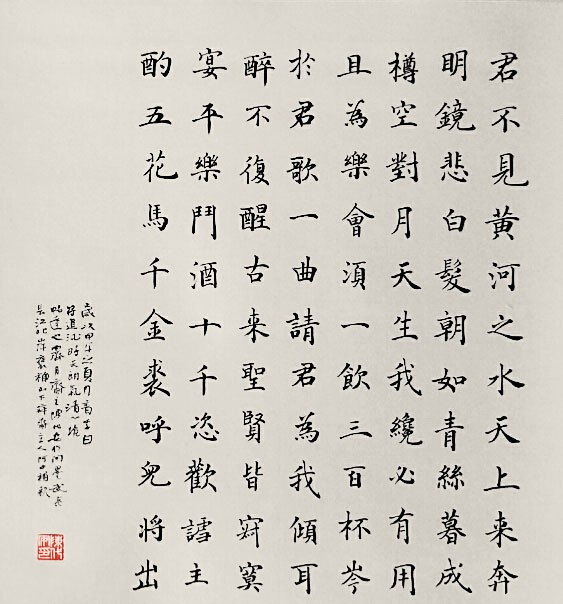 君不見黃河之水天上来奔
明鏡悲白髮朝如青絲暮成
樽空對月天生我纔必有用
且為樂會湏一飲三百杯岑
於君歌一曲請君為我傾耳
醉不復醒古来聖賢皆寂寞
宴平樂鬥酒十千恣歡謔主
酌五花馬千金裘呼兒将出
歲次甲午之夏月